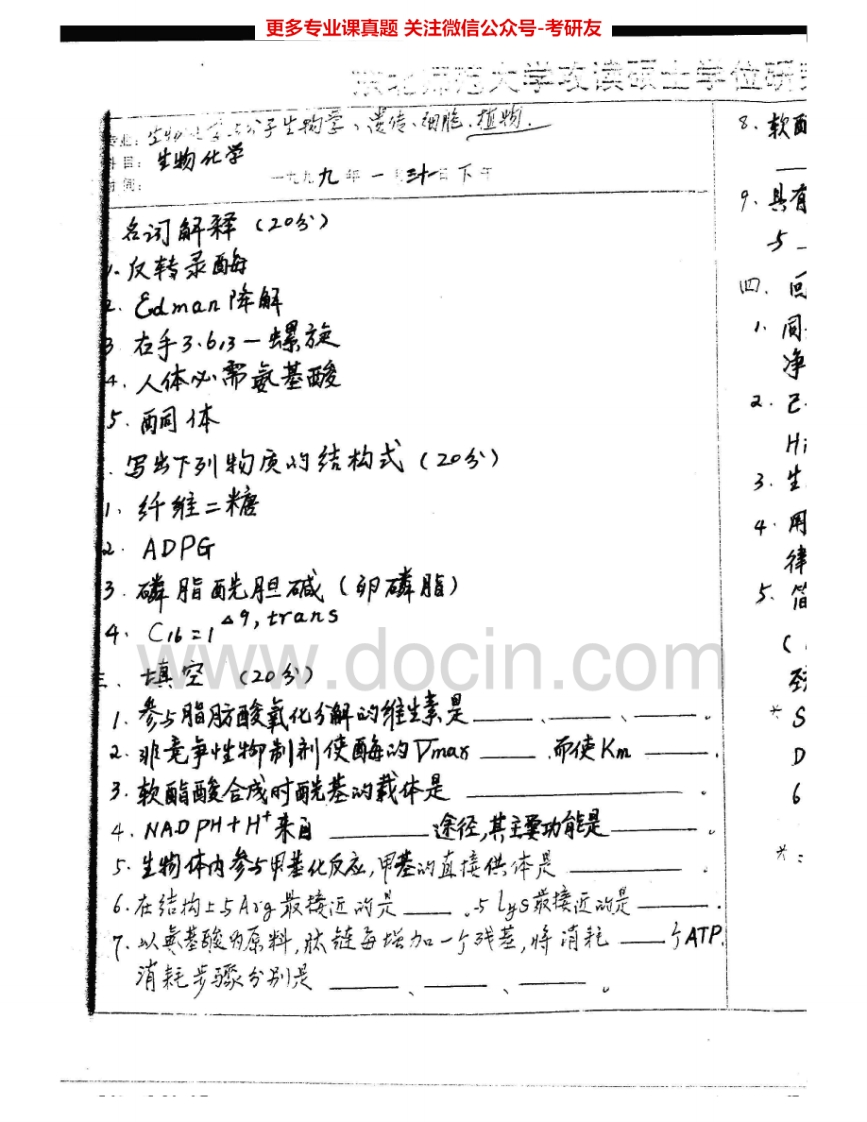 更多专业课真题 关注微信公众号-考研友
东北师范大学攻读硕士学位研
专业: 生物化学与分子生物学、遗传、细胞、植物.
科目: 生物化学
时间: 一九九九年一月三十一日下午
名词解释 (20分)
1. 反转录酶
2. Edman降解
3 右手3.613-螺旋
4. 人体必需氨基酸
5. 酮体
写出下列物质的结构式 (20分)
1、纤维二糖
2. ADPG
3. 磷脂酰胆碱 (卵磷脂)
4. C16=1 Δ9, trans
三、填空 (20分)
1. 参与脂肪酸氧化分解的维生素是____、____、____。
2. 非竞争性抑制剂使酶的Vmax ____ .而使Km ____.
3. 软酯酸合成时酰基的载体是 ____ 。
4. NADPH+H+来自 ____ 途径,其主要功能是____。
5. 生物体内参与甲基化反应,甲基的直接供体是 ____.
6. 在结构上与Arg最接近的是 ____ 。与lys最接近的是 ____.
7. 以氨基酸为原料,肽链每增加一个残基,将消耗 ____个ATP.
消耗步骤分别是 ____、____、____。
8. 软酯
9. 具有
与
四.
1.
净
2. 已
Hi
3. 生
4. 用
律
5. 简
(
* S
D
6
*:
www.docin.com